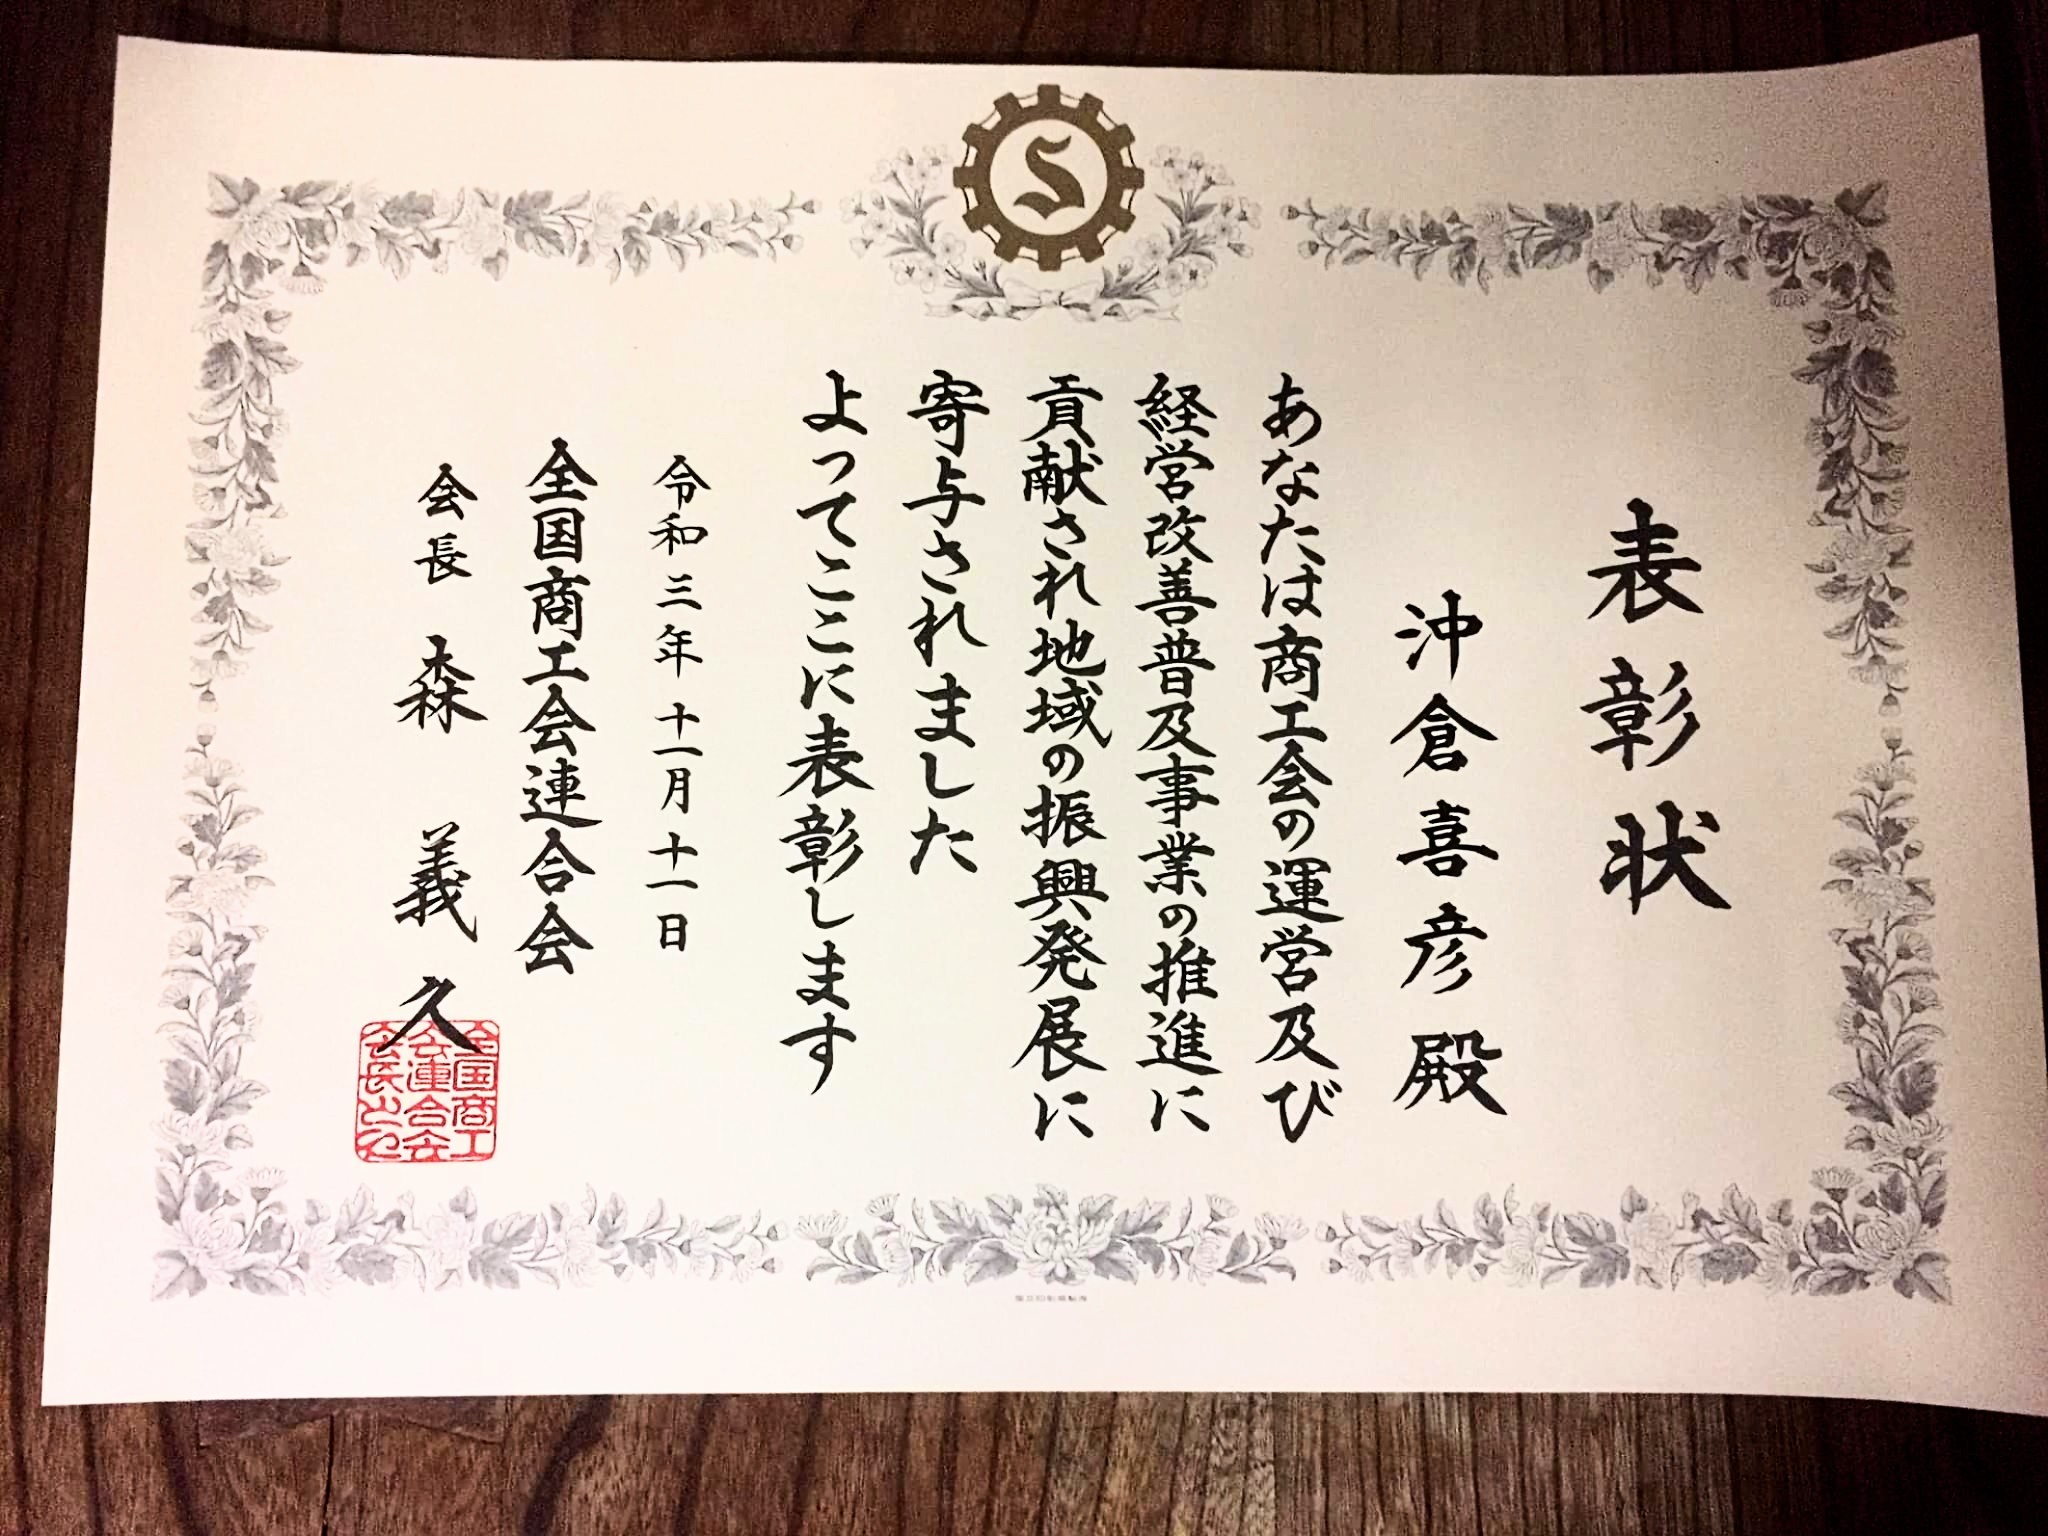 S
表彰状
沖倉喜彦殿
あなたは商工会の運営及び
経営改善普及事業の推進に
貢献され地域の振興発展に
寄与されました
よってここに表彰します
令和三年十一月十一日
全国商工会連合会
会長 森義久
全国商工
会連合会
会長之印
国立印刷局製造